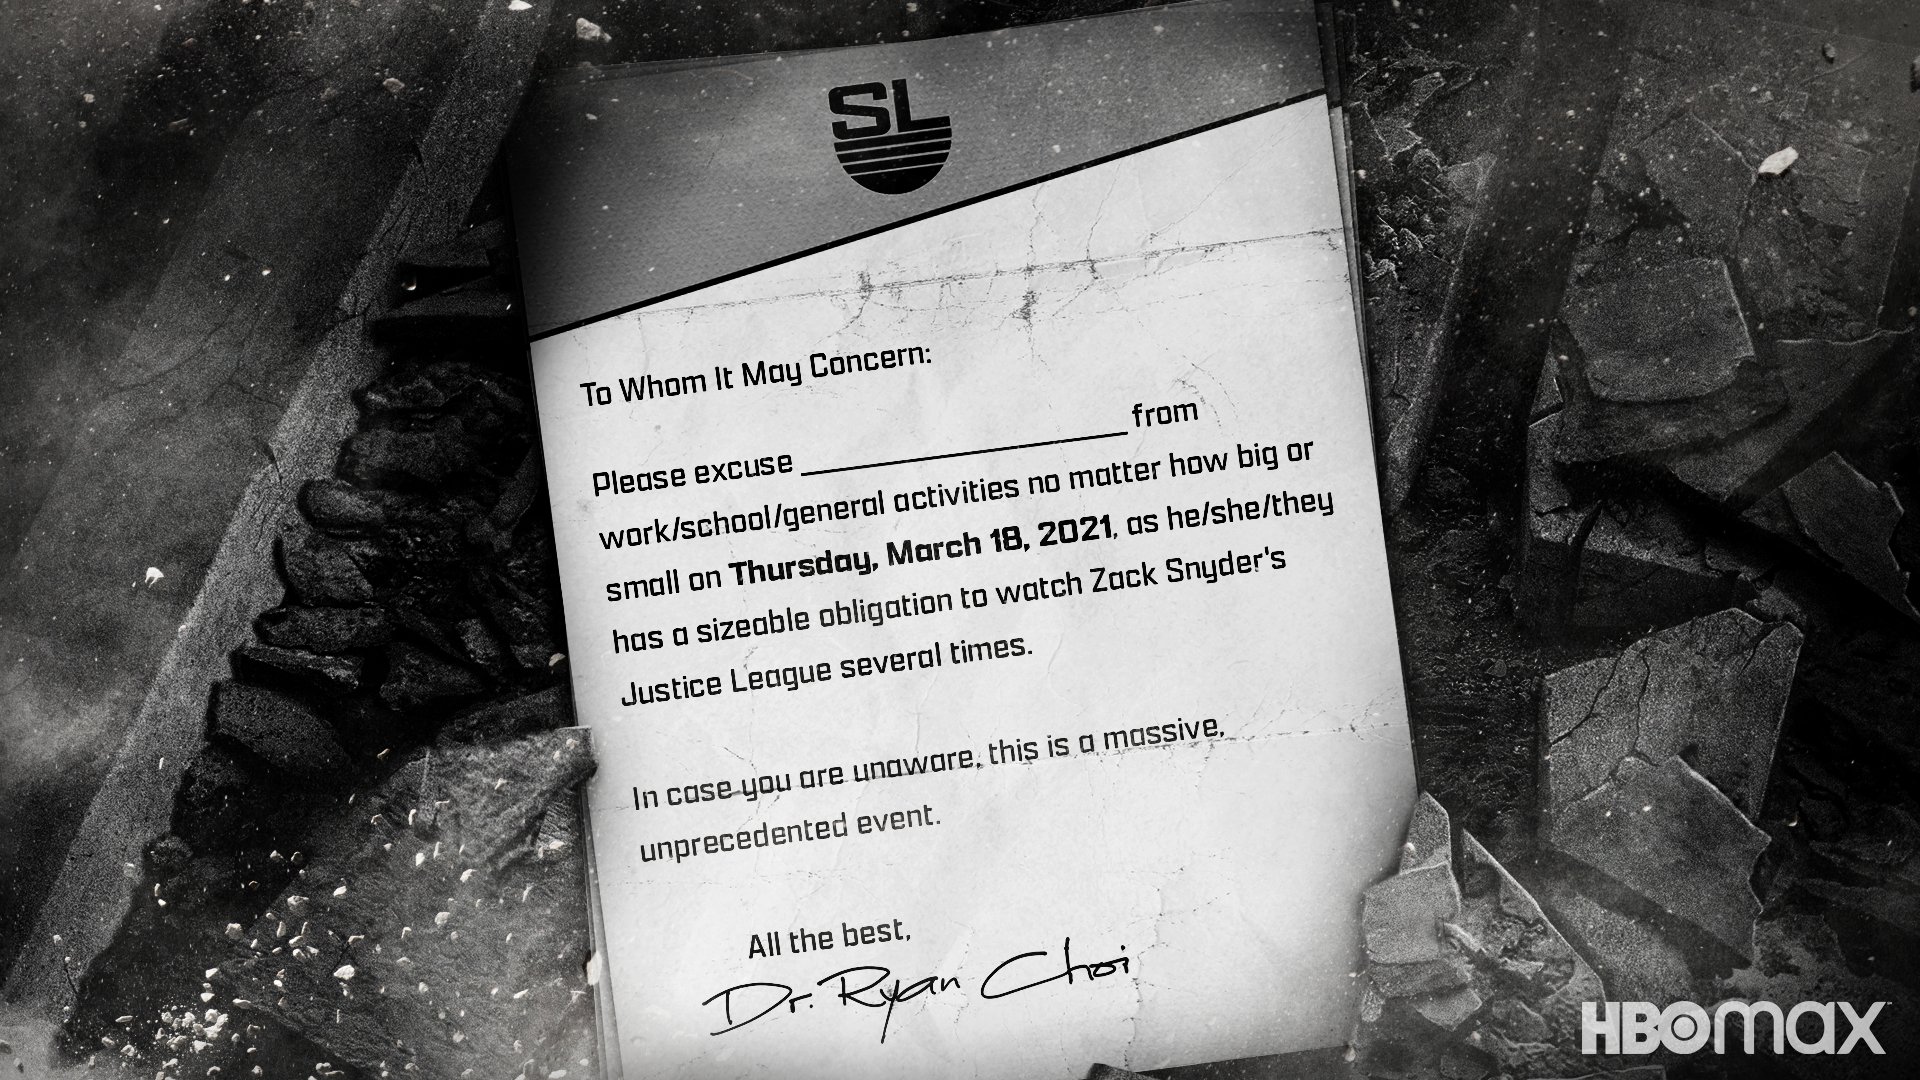 SL
To Whom It May Concern:
Please excuse ____________________ from
work/school/general activities no matter how big or
small on Thursday, March 18, 2021, as he/she/they
has a sizeable obligation to watch Zack Snyder's
Justice League several times.
In case you are unaware, this is a massive,
unprecedented event.
All the best,
Dr. Ryan Choi
HBOMAX